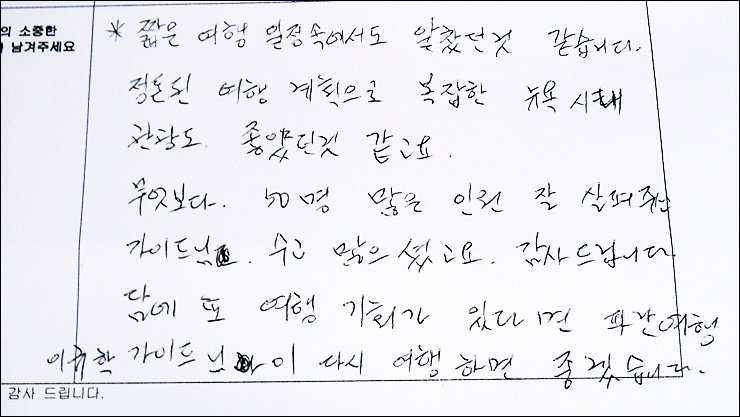 의 소중한
남겨주세요
* 짧은 여행 일정속에서도 알찼던것 같습니다.
정돈된 여행 계획으로 복잡한 뉴욕 시내
관광도 좋았던것 같고요.
무엇보다. 50명 많은 인원 잘 살펴주신
가이드님. 수고 많으셨고요. 감사드립니다
담에 또 여행 기회가 있다면 파란여행
가이드님이 다시 여행하면 좋겠습니다.
감사 드립니다.